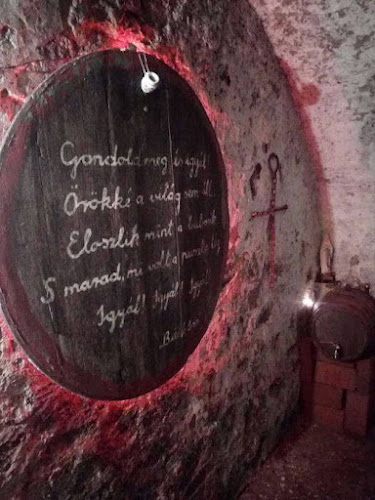 Gondold meg és igyál!
Örökké a világ sem áll.
Eloszlik mint a buborék
S marad, mi volt a puszta lég
Igyál! Igyál! Igyál!